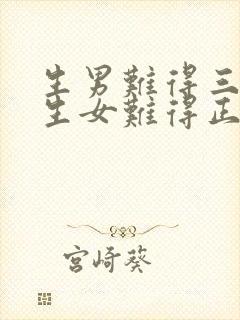 生男難得三
生女難得正
宮崎葵